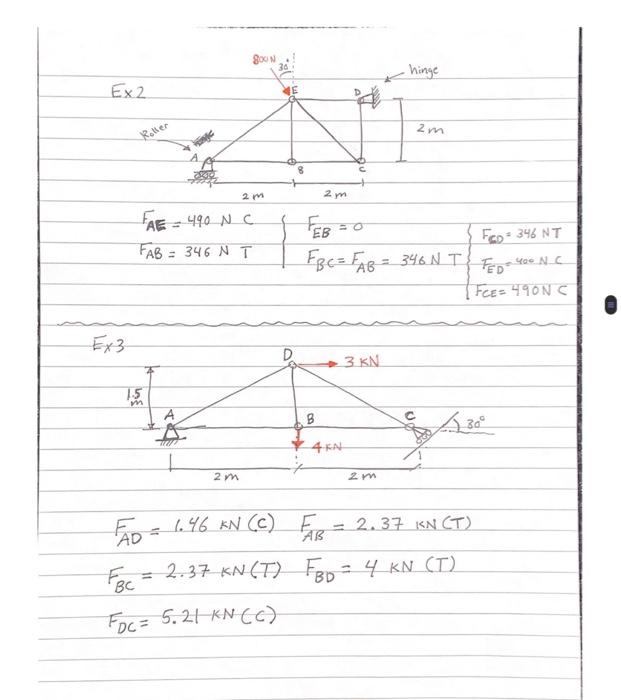 800N
30°
hinge
Ex2
E
D
2m
Roller
A
B
C
2m
2m
F_AE = 490 N C
F_EB = 0
F_CD = 346 N T
F_AB = 346 N T
F_BC = F_AB = 346 N T
F_ED = 400 N C
F_CE = 490 N C
Ex3
D
3 KN
1.5 m
A
B
C
30°
4 KN
2m
2m
F_AD = 1.46 KN (C) F_AB = 2.37 KN (T)
F_BC = 2.37 KN (T) F_BD = 4 KN (T)
F_DC = 5.21 KN (C)